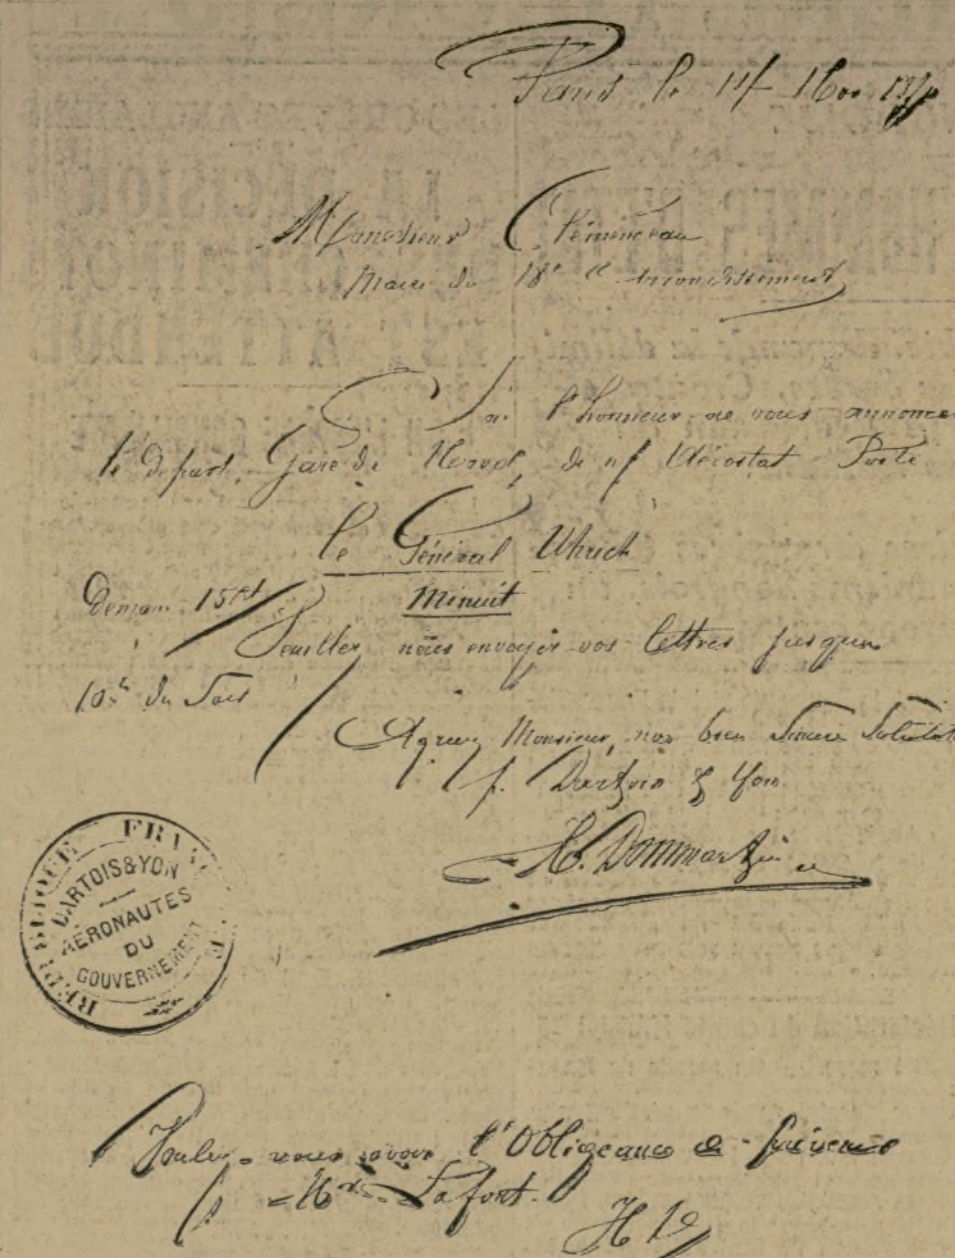 Paris le 14 Nov 1870
Monsieur Clémenceau
Maire du 18e Arrondissement
J'ai l'honneur de vous annoncer
le départ, Gare du Nord, de n/ Aérostat Poste
Le Général Uhrich
Demain 15 ct Minuit
Veuillez nous envoyer vos lettres jusqu'à
10h du Soir
Agréez Monsieur, nos bien Sincères Salutations
p. Dartois & Yon
H. Dommartin
RÉPUBLIQUE FRANÇAISE
DARTOIS & YON
AÉRONAUTES
DU
GOUVERNEMENT
Voulez-vous avoir l'Obligeance de prévenir
Mr Lafont.
H D